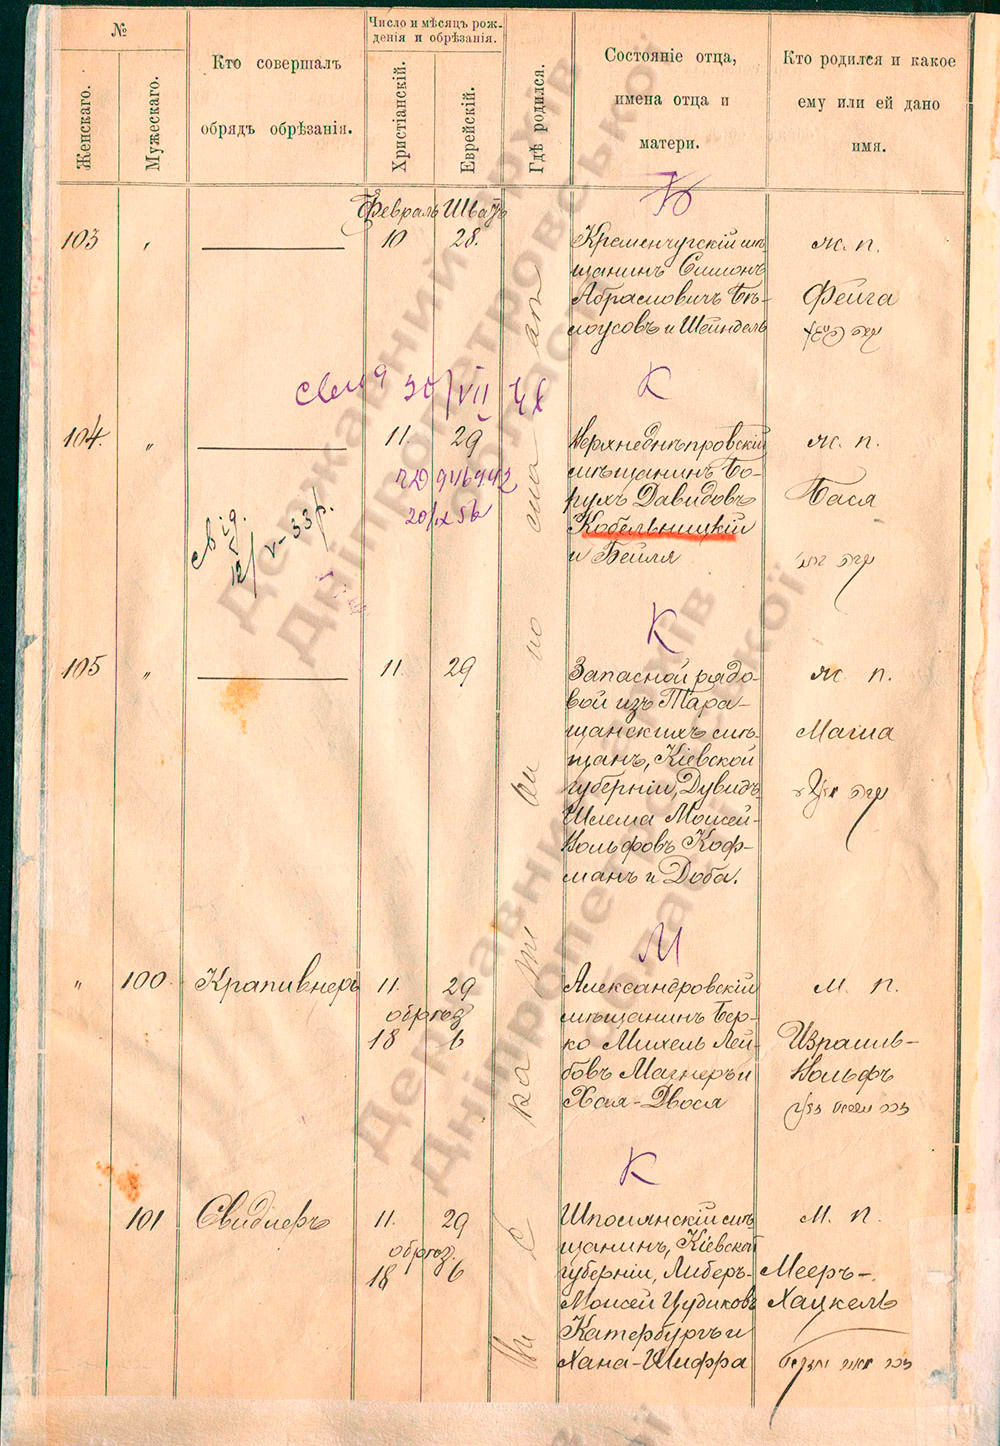 №
Женскаго.
Мужескаго.
Кто совершалъ
обрядъ обрѣзанія.
Число и мѣсяцъ рож-
денія и обрѣзанія.
Христіанскій.
Еврейскій.
Гдѣ родился.
Состояніе отца,
имена отца и
матери.
Кто родился и какое
ему или ей дано
имя.
Февраль Шватъ
Б
103 „ 10 28.
Кременчугскій мѣ-
щанинъ Симонъ
Абрамовичъ Бѣ-
лоусовъ и Шейндель
ж. п.
Фейга
К
104. „ 11. 29
свід.
12/V-33 р.
946942
20/IX 56
Верхнеднѣпровскій
мѣщанинъ Бо-
рухъ Давидовъ
Кобельницкій
и Бейля
ж. п.
Бася
К
105 „ 11. 29
Запасной рядо-
вой изъ Тара-
щанскихъ мѣ-
щанъ, Кіевской
губерніи, Дувидъ
Шлема Мошей-
Вольфовъ Коф-
манъ и Доба.
ж. п.
Маша
М
„ 100 Крапивнеръ 11. 29
обрѣз
18 6
Александровскій
мѣщанинъ Бер-
ко Михель Лей-
бовъ Магнеръ и
Хая-Двося
м. п.
Израиль-
Вольфъ
К
101 Свидлеръ 11. 29
обрѣз.
18 6
Шполянскій мѣ-
щанинъ, Кіевской
губерніи, Либеръ-
Моисей Цудиковъ
Катербургъ и
Хана-Шифра
м. п.
Мееръ-
Хацкель
Державний архів
Дніпропетровської
області
Державний архів
Дніпропетровської
області